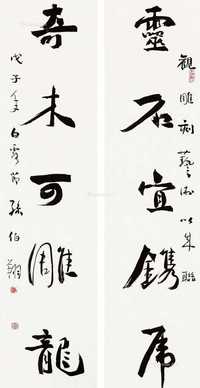 觀雕刻藝術以成聯
靈石宜鐫虎
奇木可雕龍
戊子年白露節孫伯翔